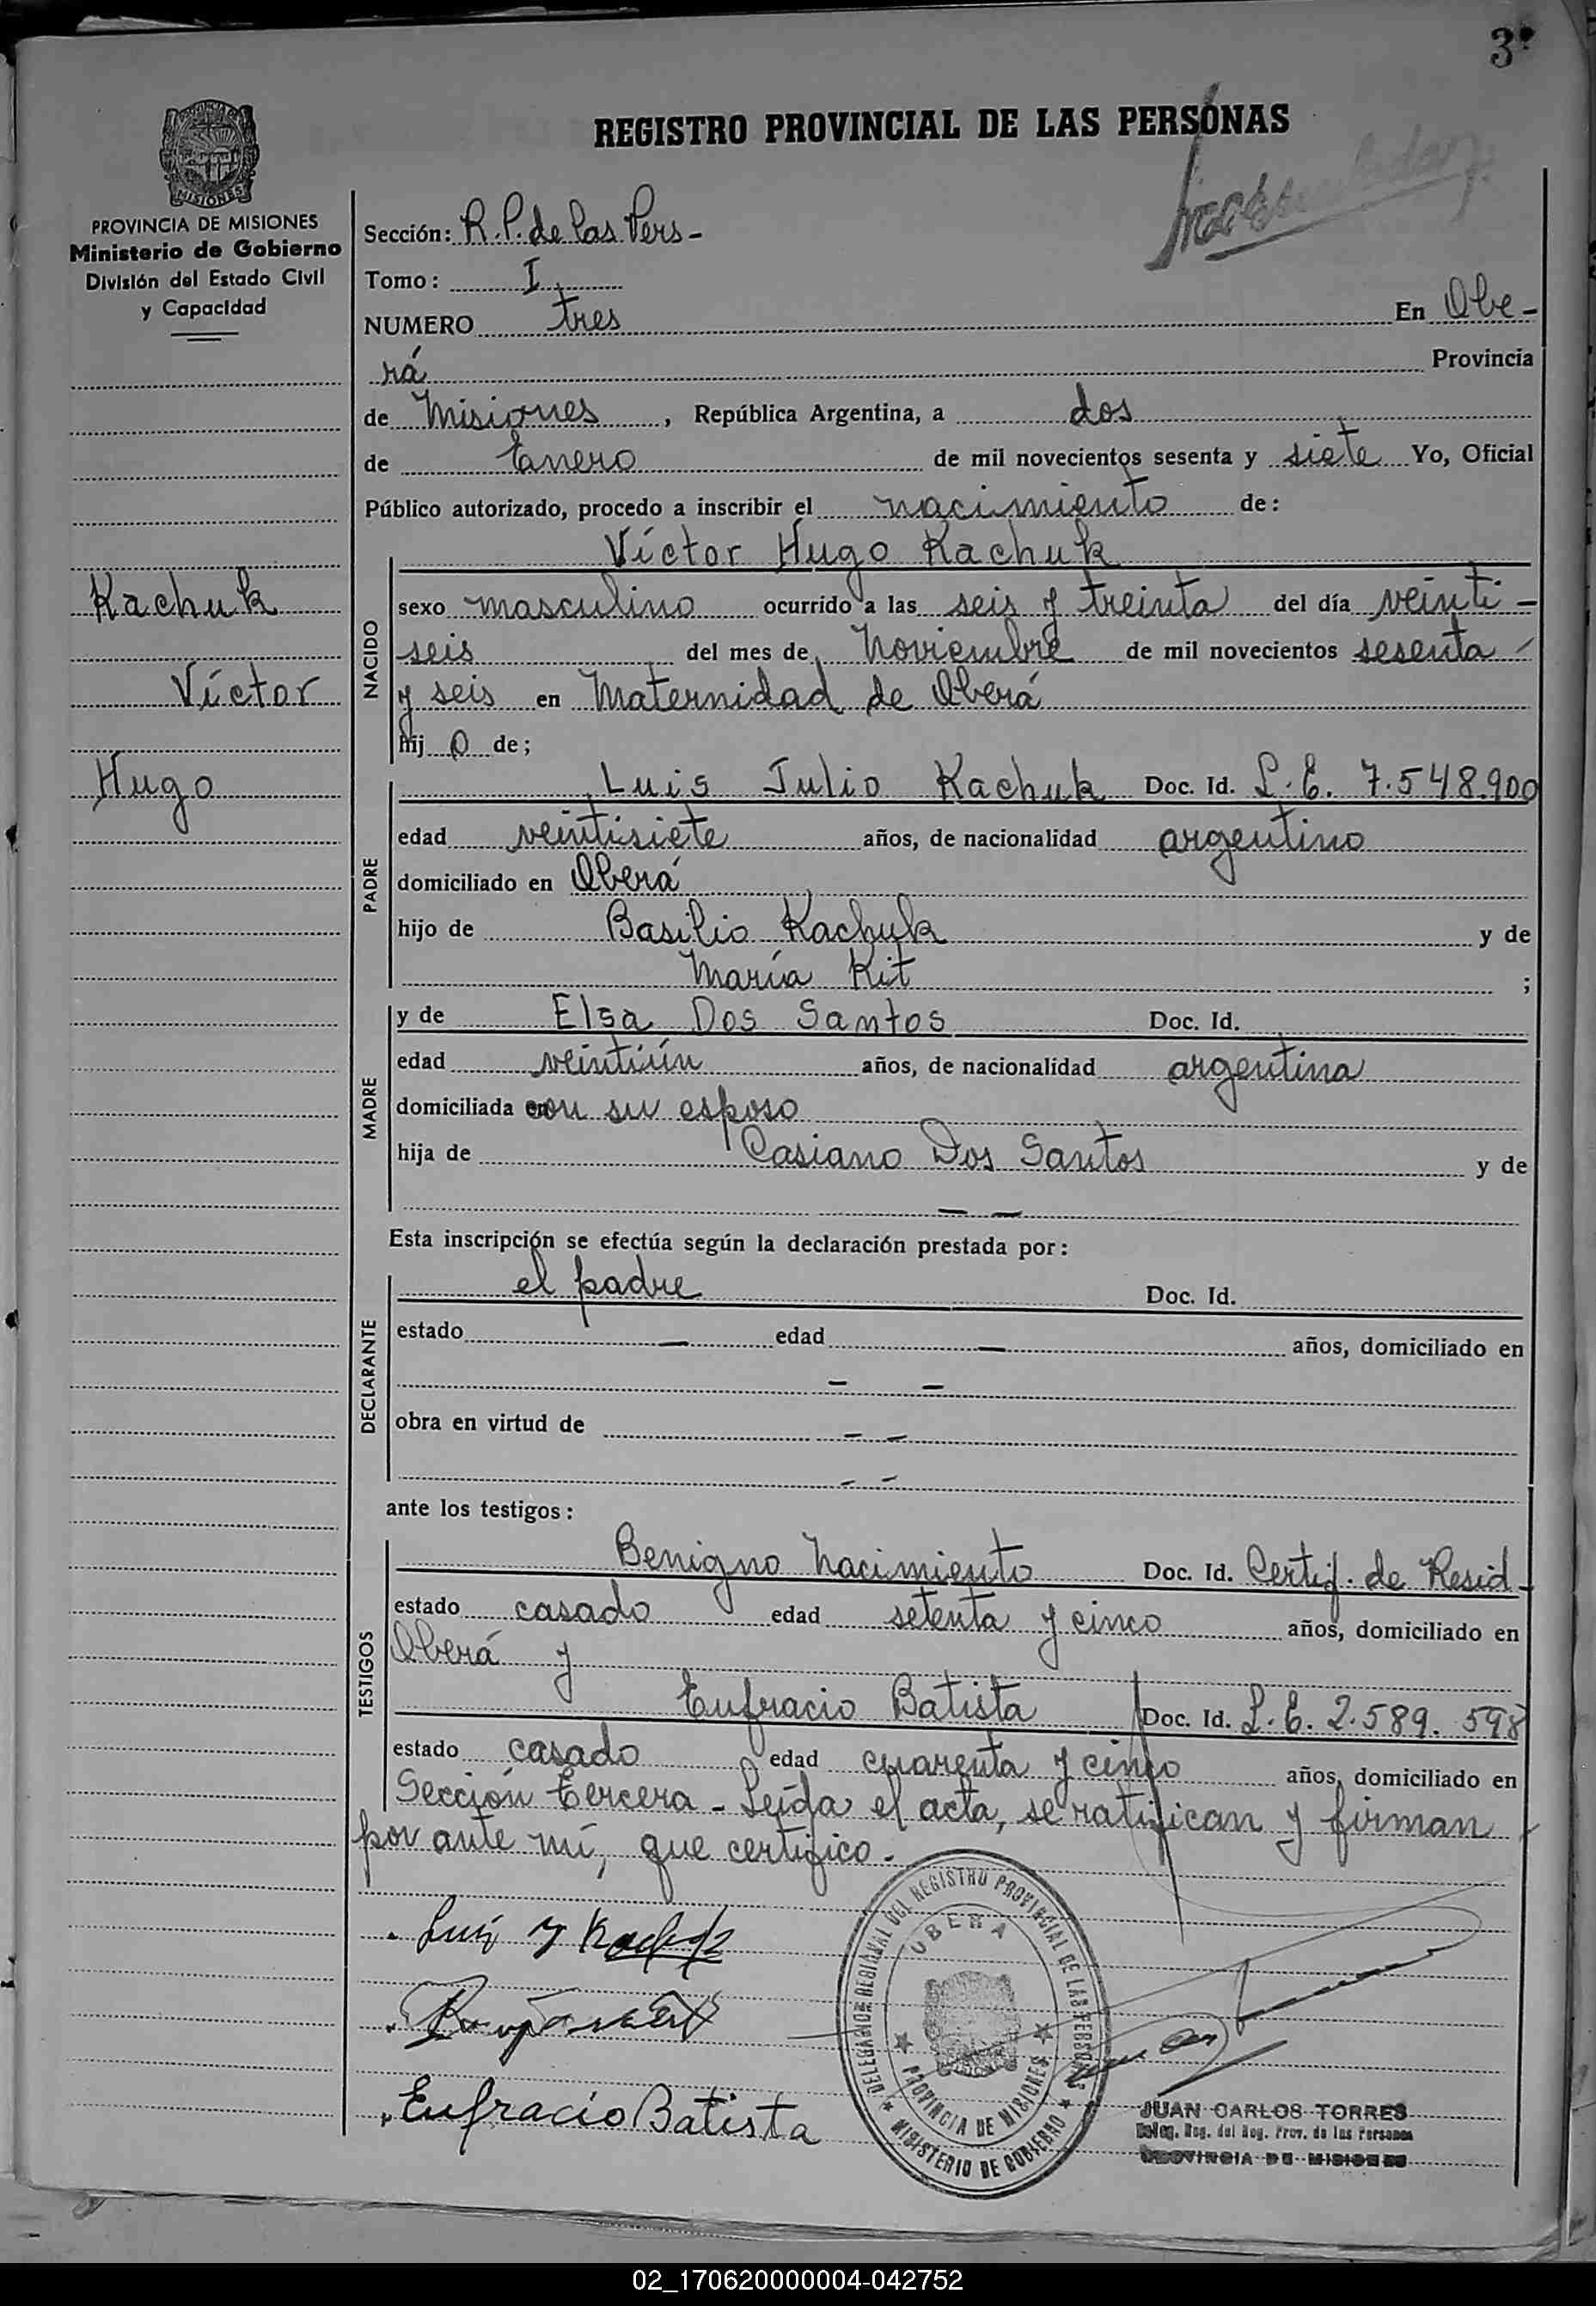 3
REGISTRO PROVINCIAL DE LAS PERSONAS
MISIONES
PROVINCIA DE MISIONES
Ministerio de Gobierno
División del Estado Civil
y Capacidad
Kachuk
Víctor
Hugo
Sección: R.P. de las Pers-
Tomo: I
NUMERO tres En Obe-
rá Provincia
de Misiones, República Argentina, a dos
de Enero de mil novecientos sesenta y siete Yo, Oficial
Público autorizado, procedo a inscribir el nacimiento de:
Víctor Hugo Kachuk
NACIDO
sexo masculino ocurrido a las seis y treinta del día veinti-
seis del mes de Noviembre de mil novecientos sesenta
y seis en Maternidad de Oberá
hijo de;
PADRE
Luis Julio Kachuk Doc. Id. L.E. 7.548.900
edad veintisiete años, de nacionalidad argentino
domiciliado en Oberá
hijo de Basilio Kachuk y de
María Kit ;
MADRE
y de Elsa Dos Santos Doc. Id.
edad veintiún años, de nacionalidad argentina
domiciliada con su esposo
hija de Casiano Dos Santos y de
— —
Esta inscripción se efectúa según la declaración prestada por:
DECLARANTE
el padre Doc. Id.
estado — edad — años, domiciliado en
— —
obra en virtud de — —
- -
ante los testigos:
TESTIGOS
Benigno Nacimiento Doc. Id. Certif. de Resid-
estado casado edad setenta y cinco años, domiciliado en
Oberá y
Eufracio Batista Doc. Id. L.E. 2.589.598
estado casado edad cuarenta y cinco años, domiciliado en
Sección tercera - Leída el acta, se ratifican y firman
por ante mí, que certifico.-
Luis J Kachuk
Eufracio Batista
DELEGACION REGIONAL DEL REGISTRO PROVINCIAL DE LAS PERSONAS
OBERA
PROVINCIA DE MISIONES
MINISTERIO DE GOBIERNO
JUAN CARLOS TORRES
Deleg. Reg. del Reg. Prov. de las Personas
PROVINCIA DE MISIONES
02_170620000004-042752